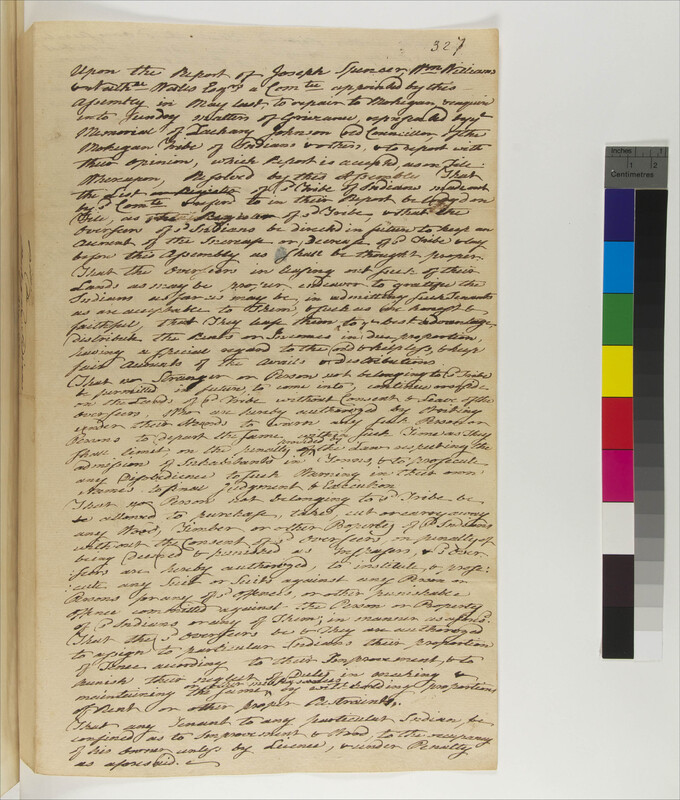 327
Upon the Report of Joseph Spencer, Wm Williams
& Nathll Wales Esqrs a Comtte appointed by this
Assembly in May last, to repair to Mohegan, & enquire
into Sundry matters of Grievance, represented by ye
Memorial of Zachary Johnson old Councillor of the
Mohegan Tribe of Indians & others, & to report with
their opinion, which Report is accepted, as on file.
Whereupon, Resolved by this Assembly That
the List or Register of sd Tribe of Indians made out
by sd Comtte & referd to in their Report be lodgd on
File, as the Register of sd Tribe, & that the
Overseers of sd Indians be directed in future to keep an
Account of the Increase or Decrease of sd Tribe & lay
before this Assembly as shall be thought proper.
That the Overseers in leasing out such of their
Lands as may be proper endeavor to gratifie the
Indians as far as may be in admitting such Tenants
as are acceptable to Them, & such as are honest &
faithful, that They lease them to ye best advantage,
distribute the Rents or Incomes in due proportion,
having a special regard to the old & helpless, & keep
fair Accounts of the Avails & distributions.
That no Stranger or Person not belonging to sd Tribe
be permitted in future, to come into, continue or reside
on the Lands of sd Tribe without Consent & Leave of the
Overseers, Who are hereby authorized by Writing
under their Hands to warn any such Person or
Persons to depart the same within such Time as They
shall limit, on the penalty provided by the Law respecting the
admission of Inhabitants in Towns, & to prosecute
any Disobedience to such Warning in their own
Names to final Judgment & Execution
That no Person not belonging to sd Tribe be
be allowed to purchase, take, cut or carry away
any Wood, Timber or other Property of sd Indians
without the Consent of sd Overseers, on penalty of
being Deemed & punished as Trespassers, & sd Over
seers are hereby authorized, to institute & prose-
cute any Suit or Suits against any Person or
Persons for any of sd offences, or other punishable
offence committed against the Person or Property
of sd Indians or any of Them, in manner as aforesd.
That the sd Overseers be & They are authorized
to assign to particular Indians their proportion
of Fence according to their Improvement, & to
punish their neglect of Duty in making &
maintaining the same, by withholding proportions
of Rent or other proper Restraints,
That any Tenant to any particular Indian, be
confined as to Improvement & Wood, to the occupancy
of his owner unless by Licence, & under Penalty
as aforesaid.